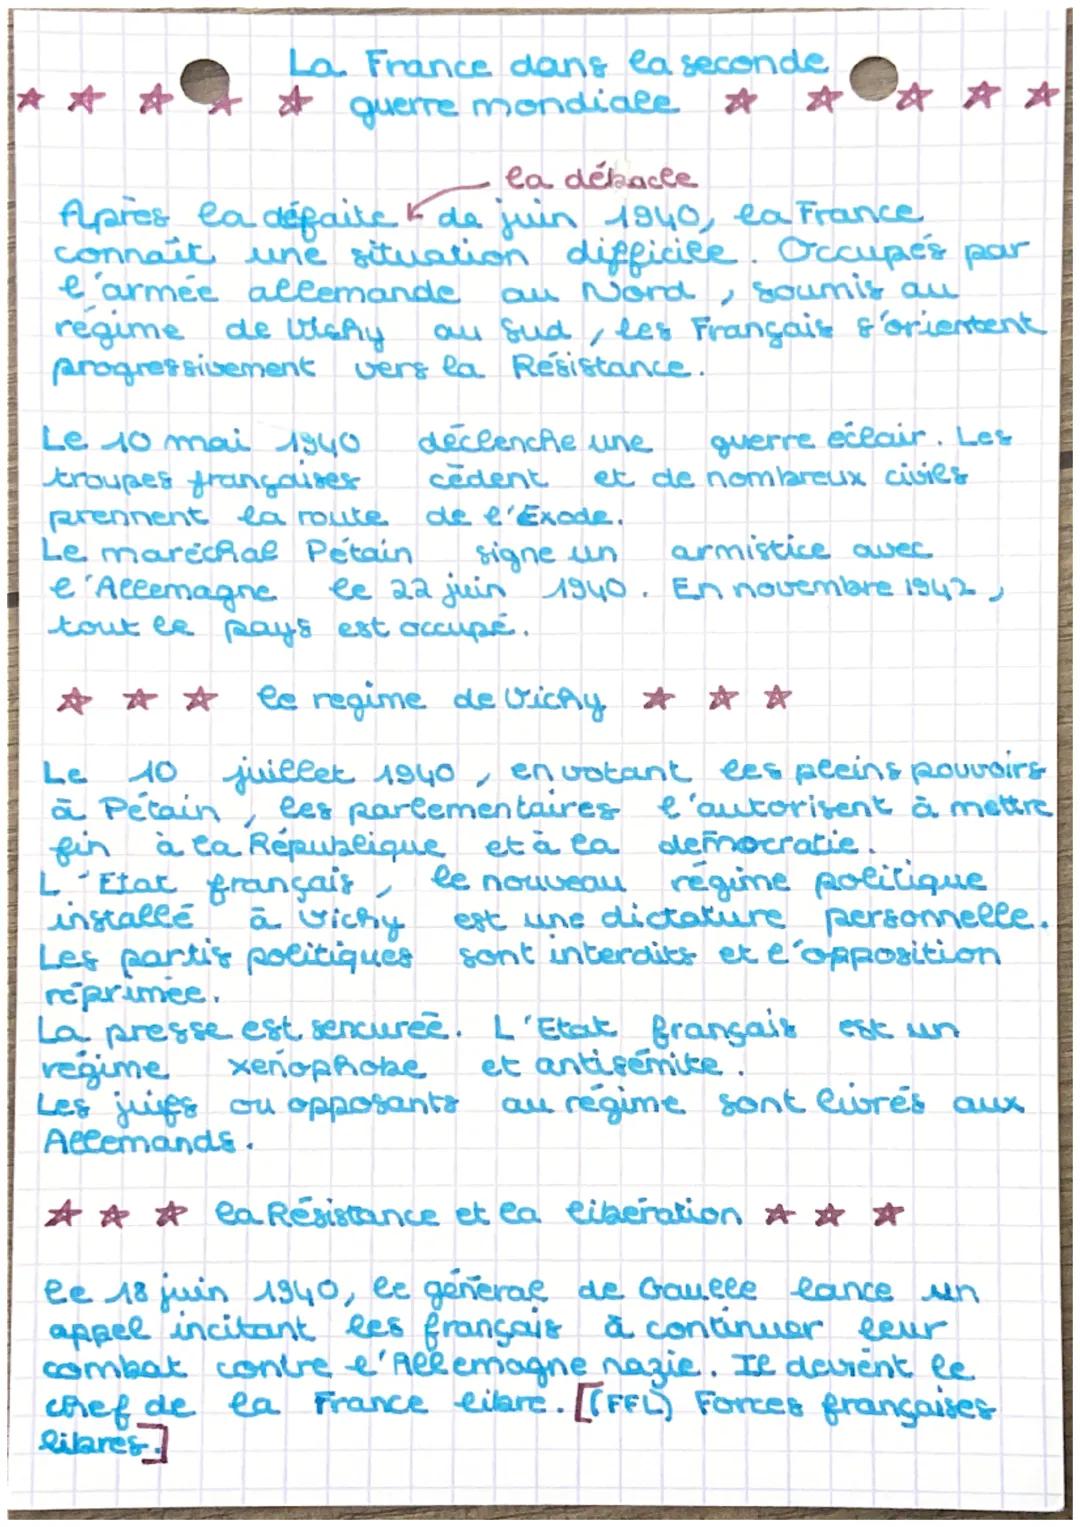 La France dans la seconde
guerre mondiale
la débacle
Après la défaite de juin 1940, la France
connaît une situation difficile. Occupés par
l'armée allemande au Nord, soumis au
régime de Vichy au Sud, les Français s'orientent
progressivement vers la Résistance.
Le 10 mai 1940 déclenche une guerre éclair. Les
troupes françaises cèdent et de nombreux civils
prennent la route de l'Exode.
Le maréchal Pétain signe un armistice avec
l'Allemagne le 22 juin 1940. En novembre 1942,
tout le pays est occupé.
le regime de Vichy
Le 10 juillet 1940, en votant les pleins pouvoirs
à Pétain, les parlementaires l'autorisent à mettre
fin à la République et à la démocratie.
L'Etat français, le nouveau régime politique
installé à Vichy est une dictature personnelle.
Les partis politiques sont interdits et l'opposition
réprimée.
La presse est sencurée. L'Etat français est un
régime xénophobe et antisémite.
Les juifs ou opposants au régime sont livrés aux
Allemands.
la Résistance et la libération
le 18 juin 1940, le général de Gaulle lance un
appel incitant les français à continuer leur
combat contre l'Allemagne nazie. Il devient le
chef de la France libre. [(FFL) Forces françaises
libres.]